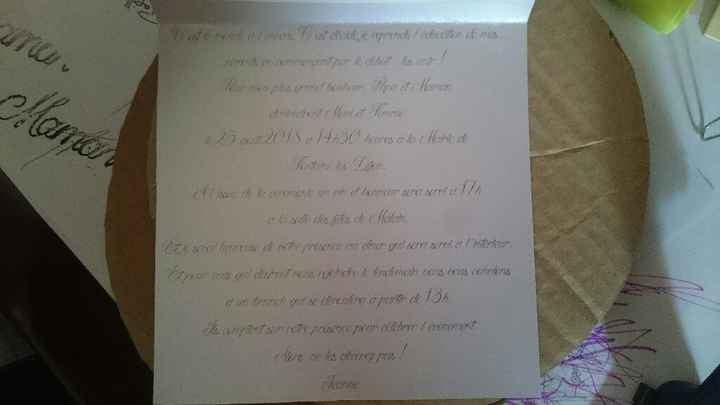 le monde à l'envers. C'est décidé, je reprends l'éducation de mes
parents en commençant par le début : les unir !
Pour mon plus grand bonheur, Papa et Maman
deviendront Mari et Femme
le 25 août 2018 à 14h30 heures à la Mairie de
Fontaine les Dijon.
A l'issue de la cérémonie un vin d'honneur sera servi à 17h
à la salle des fêtes de
de votre présence au dîner qui sera servi à l'intérieur.
Et pour ceux qui désirent nous rejoindre le lendemain nous vous convions
à un brunch qui se déroulera à partir de 13h.
Ils comptent sur votre présence pour célébrer l'événement.
Alors ne les décevez pas !
Jeanne
Maman